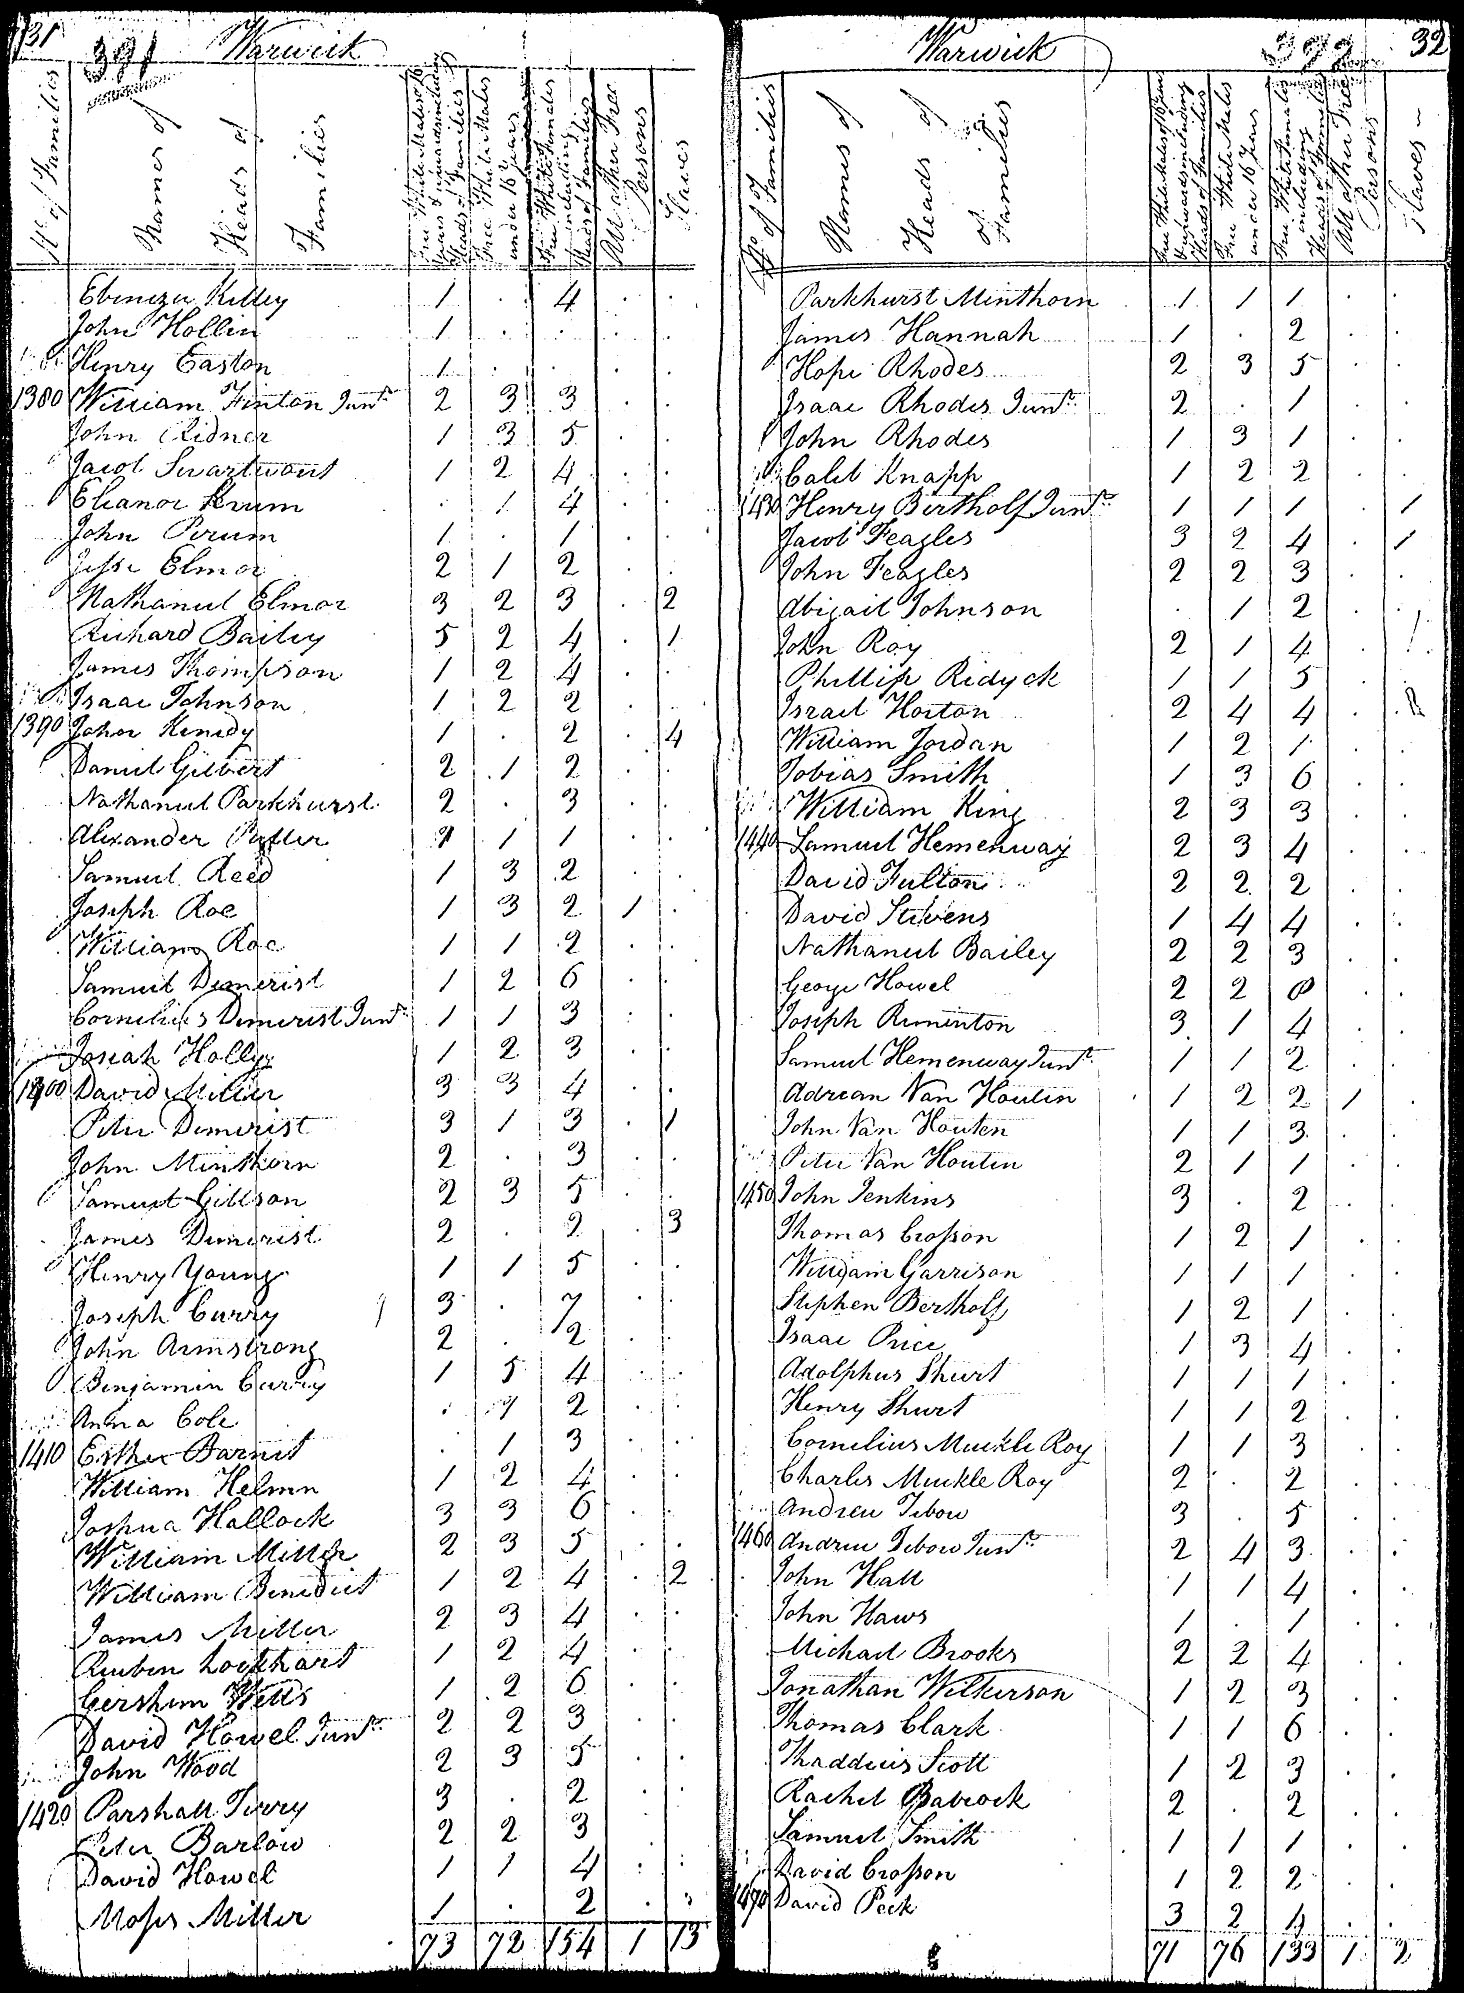 31 391 Warwick
No of Families
Names of Heads of Families
Free White Males of 16 years & upwards including Heads of Families
Free White Males under 16 years
Free White Females including Heads of Families
All other Free Persons
Slaves
Ebenezer Killey 1 . 4 . .
John Hollin 1 . . . .
Henry Easton 1 . . . .
1380 William Finton Junr. 2 3 3 . .
John Ridner 1 3 5 . .
Jacob Swartwout 1 2 4 . .
Eleanor Krum . 1 4 . .
John Perum 1 . 1 . .
Jesse Elmor 2 1 2 . .
Nathanul Elmor 3 2 3 . 2
Richard Bailey 5 2 4 . 1
James Thompson 1 2 4 . .
Isaac Johnson 1 2 2 . .
1390 John Kenedy 1 . 2 . 4
Daniel Gilbert 2 1 2 . .
Nathanul Parkhurst 2 . 3 . .
Alexander 1 1 . .
Samuel Reed 1 3 2 . .
Joseph Roe 1 3 2 1 .
William Roe 1 1 2 . .
Samuel Demerist 1 2 6 . .
Cornelius Demerist Junr. 1 1 3 . .
Josiah Holly 1 2 3 . .
1400 David Miller 3 3 4 . .
Peter Demerist 3 1 3 . 1
John Minthorn 2 . 3 . .
Samuel Gillson 2 3 5 . .
James Demerist 2 . 2 . 3
Henry Young 1 1 5 . .
Joseph Curry 3 . 7 . .
John Armstrong 2 . 2 . .
Benjamin Curry 1 5 4 . .
Anna Cole . 1 2 . .
1410 Esther Barnet . 1 3 . .
William Helmn 1 2 4 . .
Joshua Hallock 3 3 6 . .
William Miller 2 3 5 . .
William Benedict 1 2 4 . 2
James Miller 2 3 4 . .
Reuben Lockhart 1 2 4 . .
Gershum Wells 1 2 6 . .
David Howel Junr. 2 2 3 . .
John Wood 2 3 5 . .
1420 Parshall Terry 3 . 2 . .
Peter Barlow 2 2 3 . .
David Howel 1 1 4 . .
Moses Miller 1 . 2 . .
73 72 154 1 13
Warwick 392 32
No of Families
Names of Heads of Families
Free White Males of 16 years & upwards including Heads of Families
Free White Males under 16 years
Free White Females including Heads of Families
All other Free Persons
Slaves
Parkhurst Minthorn 1 1 1 . .
James Hannah 1 . 2 . .
Hope Rhodes 2 3 5 . .
Isaac Rhodes Junr. 2 . 1 . .
John Rhodes 1 3 1 . .
Caleb Knapp 1 2 2 . .
1430 Henry Bertholf Junr. 1 1 1 . 1
Jacob Feagles 3 2 4 . 1
John Feagles 2 2 3 . .
Abigail Johnson . 1 2 . .
John Roy 2 1 4 . .
Phillip Ridyck 1 1 5 . .
Israel Horton 2 4 4 . .
William Jordan 1 2 1 . .
Tobias Smith 1 3 6 . .
William King 2 3 3 . .
1440 Samuel Hemenway 2 3 4 . .
David Fulton 2 2 2 . .
David Stevens 1 4 4 . .
Nathanul Bailey 2 2 3 . .
George Howel 2 2 . .
Joseph Rimenton 3 1 4 . .
Samuel Hemenway Junr. 1 1 2 . .
Adrean Van Houten 1 2 2 1 .
John Van Houten 1 1 3 . .
Peter Van Houten 2 1 1 . .
1450 John Jenkins 3 . 2 . .
Thomas Crosson 1 2 1 . .
William Garrison 1 1 1 . .
Stephen Bertholf 1 2 1 . .
Isaac Price 1 3 4 . .
Adolphus Shurt 1 1 1 . .
Henry Shurt 1 1 2 . .
Cornelius Muckle Roy 1 1 3 . .
Charles Muckle Roy 2 . 2 . .
Andrew Tebow 3 . 5 . .
1460 Andrew Tebow Junr. 2 4 3 . .
John Hall 1 1 4 . .
John Haws 1 . 1 . .
Michael Brooks 2 2 4 . .
Jonathan Wilkerson 1 2 3 . .
Thomas Clark 1 1 6 . .
Thaddeus Scott 1 2 3 . .
Rachel Babcock 2 . 2 . .
Samuel Smith 1 1 1 . .
David Crosson 1 2 2 . .
1470 David Peck 3 2 . .
71 76 133 1 2